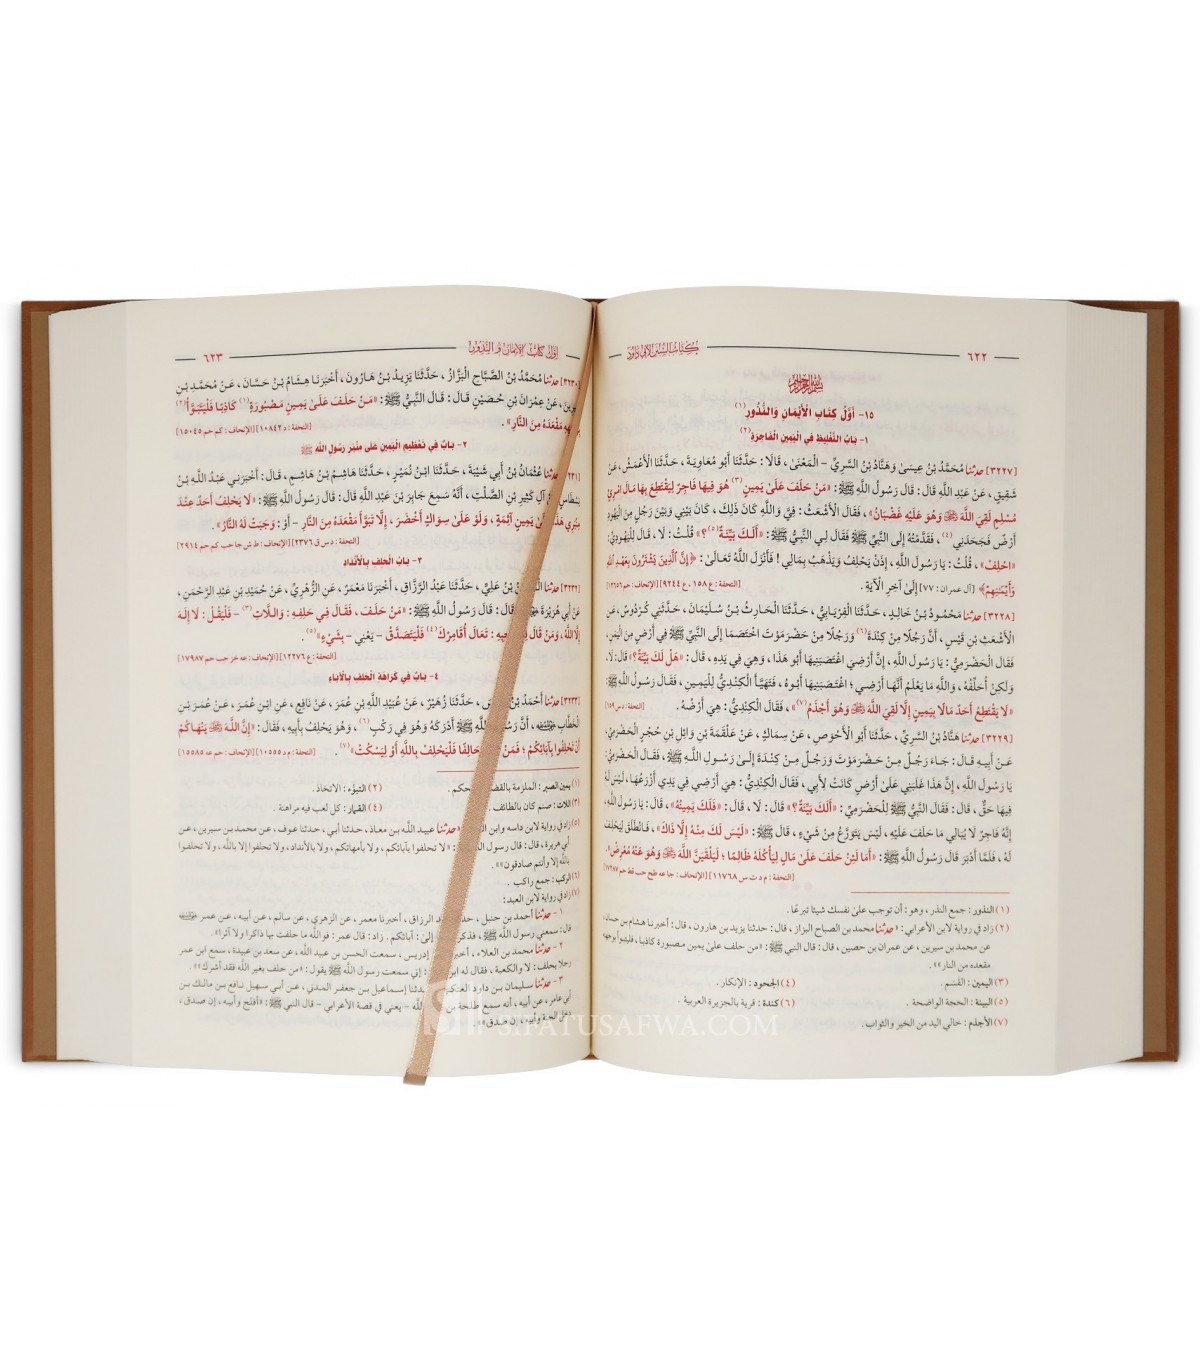 ٦٢٢
كتاب السنن لأبي داود
بسم الله الرحمن الرحيم
١٥- أَوَّلُ كِتَابِ الْأَيْمَانِ وَالنُّذُورِ (١)
١- بَابُ التَّغْلِيظِ فِي الْيَمِينِ الْفَاجِرَةِ (٢)
[٣٢٢٧] حدثنا مُحَمَّدُ بْنُ عِيسَىٰ وَهَنَّادُ بْنُ السَّرِيِّ - الْمَعْنَىٰ، قَالَا: حَدَّثَنَا أَبُو مُعَاوِيَةَ، حَدَّثَنَا الْأَعْمَشُ، عَنْ
شَقِيقٍ، عَنْ عَبْدِ اللَّهِ قَالَ: قَالَ رَسُولُ اللَّهِ ﷺ: «مَنْ حَلَفَ عَلَىٰ يَمِينٍ (٣) هُوَ فِيهَا فَاجِرٌ لِيَقْتَطِعَ بِهَا مَالَ امْرِئٍ
مُسْلِمٍ لَقِيَ اللَّهَ ﷻ وَهُوَ عَلَيْهِ غَضْبَانُ»، فَقَالَ الْأَشْعَثُ: فِيَّ وَاللَّهِ كَانَ ذَلِكَ، كَانَ بَيْنِي وَبَيْنَ رَجُلٍ مِنَ الْيَهُودِ
أَرْضٌ فَجَحَدَنِي (٤)، فَقَدَّمْتُهُ إِلَى النَّبِيِّ ﷺ فَقَالَ لِي النَّبِيُّ ﷺ: «أَلَكَ بَيِّنَةٌ (٥)؟» قُلْتُ: لَا، قَالَ لِلْيَهُودِيِّ:
«احْلِفْ»، قُلْتُ: يَا رَسُولَ اللَّهِ، إِذَنْ يَحْلِفُ وَيَذْهَبُ بِمَالِي! فَأَنْزَلَ اللَّهُ تَعَالَىٰ: ﴿إِنَّ الَّذِينَ يَشْتَرُونَ بِعَهْدِ اللَّهِ
وَأَيْمَانِهِمْ﴾ [آل عمران: ٧٧] إِلَىٰ آخِرِ الْآيَةِ. [التحفة: ع ١٥٨، ع ٩٢٤٤] [الإتحاف: حم
[٣٢٢٨] حدثنا مَحْمُودُ بْنُ خَالِدٍ، حَدَّثَنَا الْفِرْيَابِيُّ، حَدَّثَنَا الْحَارِثُ بْنُ سُلَيْمَانَ، حَدَّثَنِي كُرْدُوسٌ، عَنِ
الْأَشْعَثِ بْنِ قَيْسٍ، أَنَّ رَجُلًا مِنْ كِنْدَةَ (٦) وَرَجُلًا مِنْ حَضْرَمَوْتَ اخْتَصَمَا إِلَى النَّبِيِّ ﷺ فِي أَرْضٍ مِنَ الْيَمَنِ،
فَقَالَ الْحَضْرَمِيُّ: يَا رَسُولَ اللَّهِ، إِنَّ أَرْضِيَ اغْتَصَبَنِيهَا أَبُو هَذَا، وَهِيَ فِي يَدِهِ، قَالَ: «هَلْ لَكَ بَيِّنَةٌ؟» قَالَ: لَا،
وَلَكِنْ أُحَلِّفُهُ، وَاللَّهِ مَا يَعْلَمُ أَنَّهَا أَرْضِي؛ اغْتَصَبَنِيهَا أَبُوهُ، فَتَهَيَّأَ الْكِنْدِيُّ لِلْيَمِينِ، فَقَالَ رَسُولُ اللَّهِ ﷺ:
«لَا يَقْتَطِعُ أَحَدٌ مَالًا بِيَمِينٍ إِلَّا لَقِيَ اللَّهَ ﷻ وَهُوَ أَجْذَمُ (٧)»، فَقَالَ الْكِنْدِيُّ: هِيَ أَرْضُهُ. [التحفة: د س ١٥٩]
[٣٢٢٩] حدثنا هَنَّادُ بْنُ السَّرِيِّ، حَدَّثَنَا أَبُو الْأَحْوَصِ، عَنْ سِمَاكٍ، عَنْ عَلْقَمَةَ بْنِ وَائِلِ بْنِ حُجْرٍ الْحَضْرَمِيِّ،
عَنْ أَبِيهِ قَالَ: جَاءَ رَجُلٌ مِنْ حَضْرَمَوْتَ وَرَجُلٌ مِنْ كِنْدَةَ إِلَىٰ رَسُولِ اللَّهِ ﷺ، فَقَالَ الْحَضْرَمِيُّ:
يَا رَسُولَ اللَّهِ، إِنَّ هَذَا غَلَبَنِي عَلَىٰ أَرْضٍ كَانَتْ لِأَبِي، فَقَالَ الْكِنْدِيُّ: هِيَ أَرْضِي فِي يَدِي أَزْرَعُهَا، لَيْسَ لَهُ
فِيهَا حَقٌّ، قَالَ: فَقَالَ النَّبِيُّ ﷺ لِلْحَضْرَمِيِّ: «أَلَكَ بَيِّنَةٌ؟» قَالَ: لَا، قَالَ: «فَلَكَ يَمِينُهُ»، قَالَ: يَا رَسُولَ اللَّهِ،
إِنَّهُ فَاجِرٌ لَا يُبَالِي مَا حَلَفَ عَلَيْهِ، لَيْسَ يَتَوَرَّعُ مِنْ شَيْءٍ، قَالَ ﷺ: «لَيْسَ لَكَ مِنْهُ إِلَّا ذَاكَ»، فَانْطَلَقَ لِيَحْلِفَ
لَهُ، فَلَمَّا أَدْبَرَ قَالَ رَسُولُ اللَّهِ ﷺ: «أَمَا لَئِنْ حَلَفَ عَلَىٰ مَالٍ لِيَأْكُلَهُ ظَالِمًا؛ لَيَلْقَيَنَّ اللَّهَ ﷻ وَهُوَ عَنْهُ مُعْرِضٌ».
[التحفة: م د ت س ١١٧٦٨] [الإتحاف: جا عه طح حب قط حم
(١) النذور: جمع النذر، وهو: أن توجب علىٰ نفسك شيئا تبرعًا.
(٢) زاد في رواية لابن الأعرابي: «حدثنا محمد بن الصباح البزاز، قال: حدثنا يزيد بن هارون، قال: أخبرنا هشام بن حسان،
عن محمد بن سيرين، عن عمران بن حصين، قال: قال النبي ﷺ: «من حلف علىٰ يمين مصبورة كاذبا، فليتبوأ بوجهه
مقعده من النار»».
(٣) اليمين: القسم. (٤) الجحود: الإنكار.
(٥) البينة: الحجة الواضحة. (٦) كندة: قرية بالجزيرة العربية.
(٧) الأجذم: خالي اليد من الخير والثواب.
أول كتاب الأيمان والنذور
٦٢٣
[٣٢٣٠] حدثنا مُحَمَّدُ بْنُ الصَّبَّاحِ الْبَزَّازُ، حَدَّثَنَا يَزِيدُ بْنُ هَارُونَ، أَخْبَرَنَا هِشَامُ بْنُ حَسَّانَ، عَنْ مُحَمَّدِ بْنِ
عَنْ عِمْرَانَ بْنِ حُصَيْنٍ قَالَ: قَالَ النَّبِيُّ ﷺ: «مَنْ حَلَفَ عَلَىٰ يَمِينٍ مَصْبُورَةٍ (١) كَاذِبًا فَلْيَتَبَوَّأْ (٢)
مَقْعَدَهُ مِنَ النَّارِ». [التحفة: د ١٠٨٤٢] [الإتحاف: كم حم ١٥٠٤٥]
٢- بَابٌ فِي تَعْظِيمِ الْيَمِينِ عَلَىٰ مِنْبَرِ رَسُولِ اللَّهِ ﷺ
حدثنا عُثْمَانُ بْنُ أَبِي شَيْبَةَ، حَدَّثَنَا ابْنُ نُمَيْرٍ، حَدَّثَنَا هَاشِمُ بْنُ هَاشِمٍ، قَالَ: أَخْبَرَنِي عَبْدُ اللَّهِ بْنُ
نِسْطَاسٍ آلِ كَثِيرِ بْنِ الصَّلْتِ، أَنَّهُ سَمِعَ جَابِرَ بْنَ عَبْدِ اللَّهِ قَالَ: قَالَ رَسُولُ اللَّهِ ﷺ: «لَا يَحْلِفُ أَحَدٌ عِنْدَ
مِنْبَرِي هَذَا يَمِينٍ آثِمَةٍ، وَلَوْ عَلَىٰ سِوَاكٍ أَخْضَرَ، إِلَّا تَبَوَّأَ مَقْعَدَهُ مِنَ النَّارِ - أَوْ: وَجَبَتْ لَهُ النَّارُ».
[التحفة: د س ق ٢٣٧٦] [الإتحاف: ط ش جا حب كم حم ٢٩١٤]
٣- بَابُ الْحَلِفِ بِالْأَنْدَادِ
[٣٢٣٢] حدثنا بْنُ عَلِيٍّ، حَدَّثَنَا عَبْدُ الرَّزَّاقِ، أَخْبَرَنَا مَعْمَرٌ، عَنِ الزُّهْرِيِّ، عَنْ حُمَيْدِ بْنِ عَبْدِ الرَّحْمَنِ،
عَنْ أَبِي هُرَيْرَةَ قَالَ: قَالَ رَسُولُ اللَّهِ ﷺ: «مَنْ حَلَفَ، فَقَالَ فِي حَلِفِهِ: وَاللَّاتِ (٣) - فَلْيَقُلْ: لَا إِلَهَ
إِلَّا اللَّهُ، وَمَنْ قَالَ تَعَالَ أُقَامِرْكَ (٤) فَلْيَتَصَدَّقْ - يَعْنِي - بِشَيْءٍ» (٥).
[التحفة: ع ١٢٢٧٦] [الإتحاف: عه خز حب حم ١٧٩٨٧]
٤- بَابٌ فِي كَرَاهَةِ الْحَلِفِ بِالْآبَاءِ
[٣٢٣٣] حدثنا أَحْمَدُ بْنُ حَدَّثَنَا زُهَيْرٌ، عَنْ عُبَيْدِ اللَّهِ بْنِ عُمَرَ، عَنْ نَافِعٍ، عَنِ ابْنِ عُمَرَ، عَنْ عُمَرَ بْنِ
الْخَطَّابِ، أَنَّ رَسُولَ اللَّهِ ﷺ أَدْرَكَهُ وَهُوَ فِي رَكْبٍ (٦)، وَهُوَ يَحْلِفُ بِأَبِيهِ، فَقَالَ: «إِنَّ اللَّهَ يَنْهَاكُمْ
أَنْ تَحْلِفُوا بِآبَائِكُمْ؛ فَمَنْ حَالِفًا فَلْيَحْلِفْ بِاللَّهِ أَوْ لِيَسْكُتْ» (٧). [التحفة: م د ١٠٥٥٥] [الإتحاف: حم عه ١٥٥٨٥]
(١) يمين الصبر: الملزمة الحكم. (٢) التبوُّء: الاتخاذ.
(٣) اللات: صنم كان بالطائف. (٤) القمار: كل لعب فيه مراهنة.
(٥) زاد في رواية لابن داسه وابن حدثنا عبيد الله بن معاذ، حدثنا أبي، حدثنا عوف، عن محمد بن سيرين، عن
أبي هريرة، قال: قال رسول «لا تحلفوا بآبائكم، ولا بأمهاتكم، ولا بالأنداد، ولا تحلفوا إلا بالله، ولا تحلفوا
بالله إلا وأنتم صادقون»».
(٦) الركب: جمع راكب.
(٧) زاد في رواية لابن العبد:
١- حدثنا أحمد بن حنبل، عبد الرزاق، أخبرنا معمر، عن الزهري، عن سالم، عن أبيه، عن عمر
قال: سمعني رسول الله ﷺ، إلىٰ: بآبائكم. زاد: قال عمر: فوالله ما حلفت بها ذاكرا ولا آثرا».
٢- حدثنا محمد بن العلاء، إدريس، سمعت الحسن بن عبيد الله، عن سعد بن عبيدة، سمع ابن عمر
رجلا يحلف: لا والكعبة، فقال له ابن سمعت رسول الله ﷺ يقول: «من حلف بغير الله فقد أشرك»».
٣- حدثنا سليمان بن داود العتكي، حدثنا إسماعيل بن جعفر المدني، عن أبي سهيل نافع بن مالك بن
أبي عامر، عن أبيه، أنه سمع طلحة - يعني في قصة الأعرابي - قال النبي ﷺ: «أفلح وأبيه، إن صدق،
دخل الجنة وأبيه، إن صدق»».
SIFATUSAFWA.COM